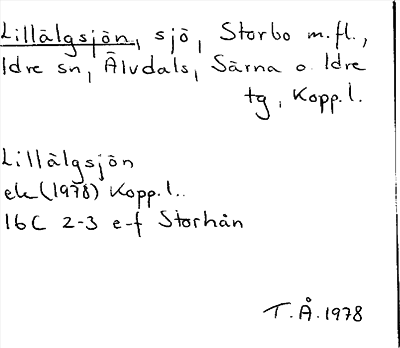 Lillälgsjön, sjö, Storbo m.fl.,
Idre sn, Älvdals, Särna o. Idre
tg, Kopp.l.
Lillälgsjön
ek (1978) Kopp.l..
16C 2-3 e-f Storhån
T.Å.1978